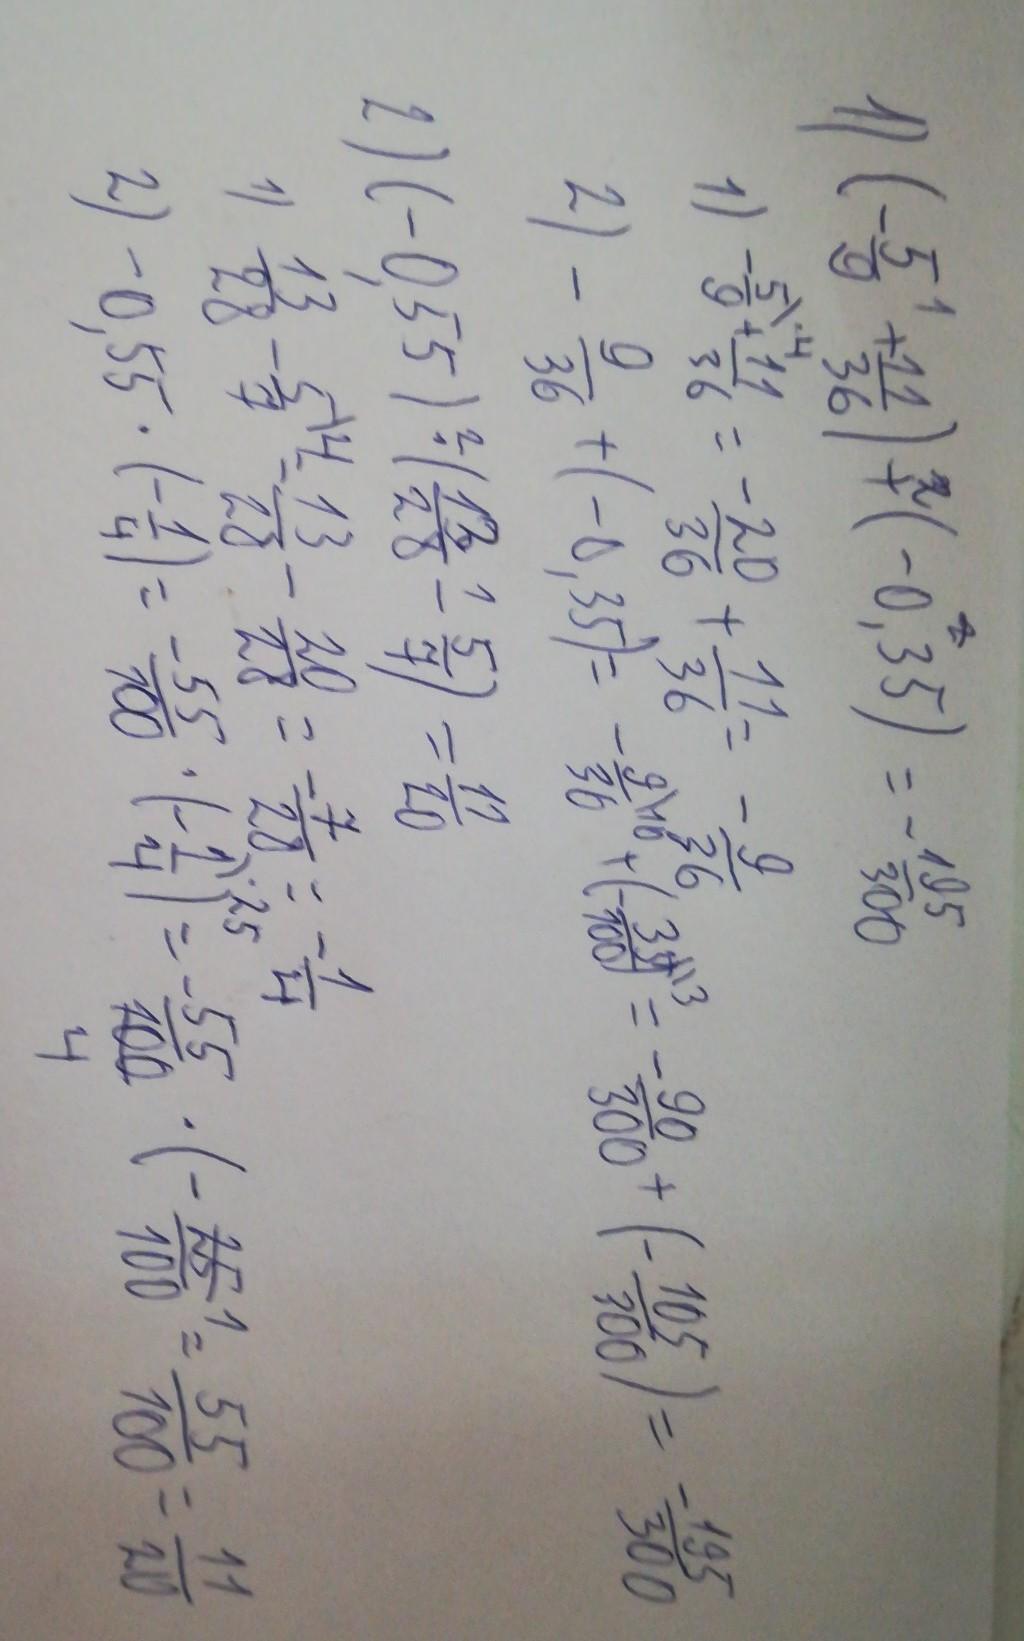 1) (-5/9 + 11/36) + (-0,35) = -195/300
1) -5/9\·4 + 11/36 = -20/36 + 11/36 = -9/36
2) -9/36 + (-0,35) = -9/36\10 + (-35/100\3) = -90/300 + (-105/300) = -195/300
2) (-0,55) · (13/28 - 5/7) = 11/20
1) 13/28 - 5/7\4 = 13/28 - 20/28 = -7/28 = -1/4
2) -0,55 · (-1/4) = -55/100 · (-1/4\·25) = -55/100 4 · (-25/100 1 = 55/100 = 11/20